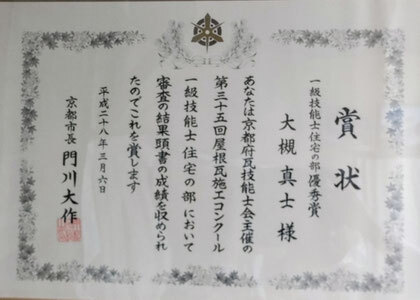 賞状
一級技能士住宅の部 優秀賞
大槻真士様
あなたは京都府瓦技能士会主催の
第三十五回屋根瓦施工コンクール
一級技能士住宅の部において
審査の結果頭書の成績を収められ
たのでこれを賞します
平成二十八年三月六日
京都市長 門川大作